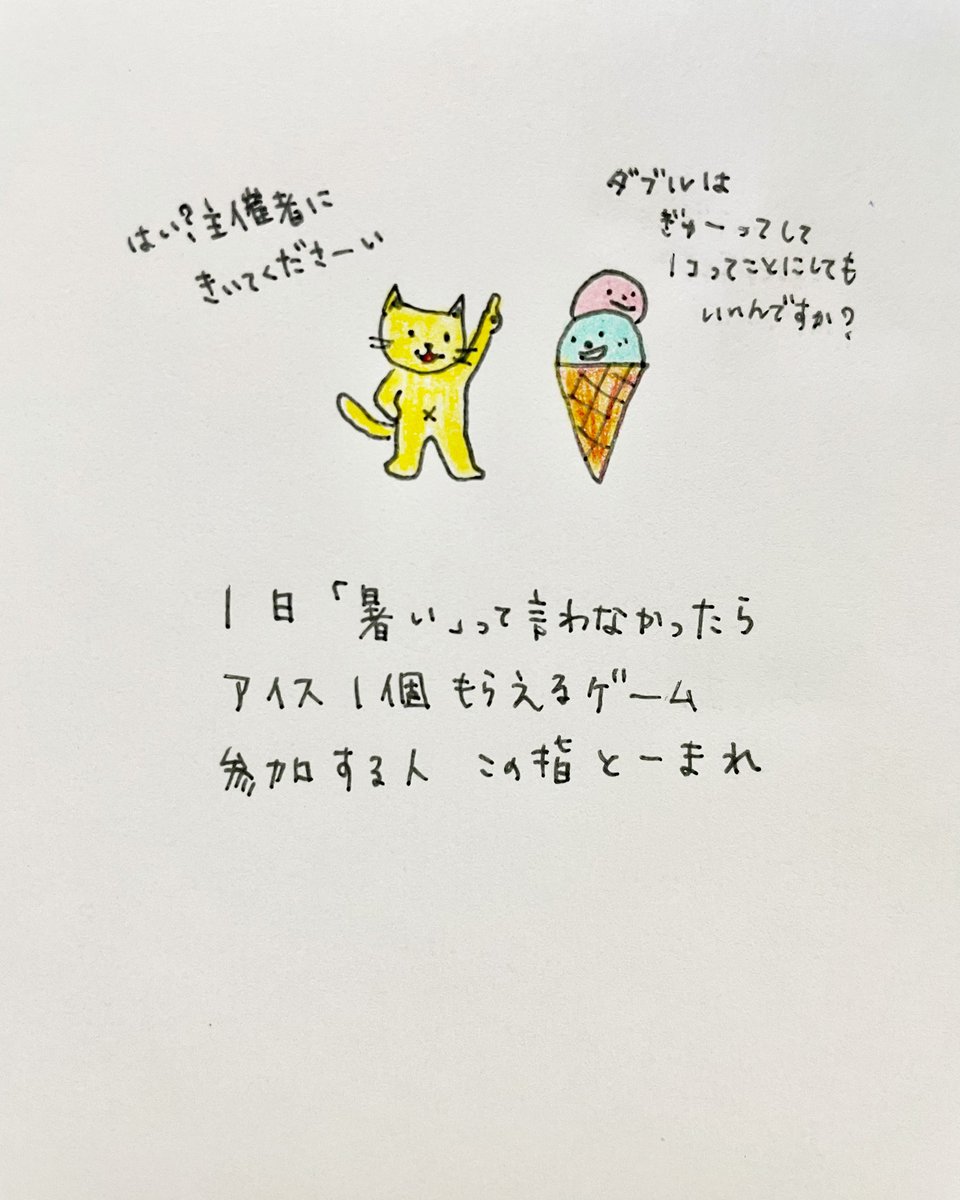 はい?主催者に
きいてくださーい
ダブルは
ぎゅーってして
1コってことにしても
いいんですか?
1日「暑い」って言わなかったら
アイス1個もらえるゲーム
参加する人 この指とーまれ